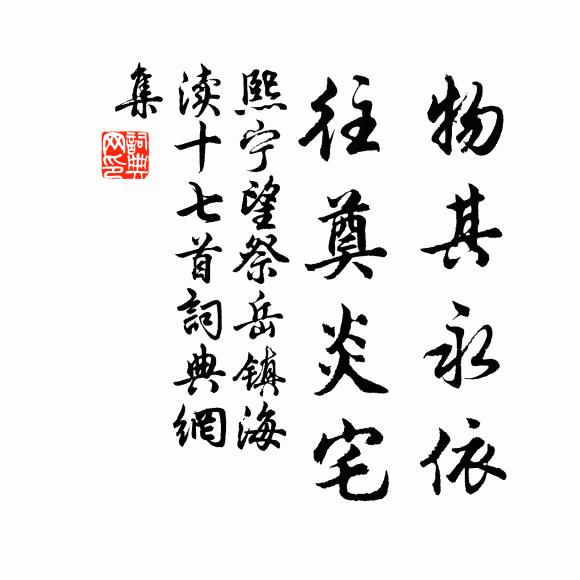 物其永依
往奠炎宅
熙宁望祭岳镇海
渎十七首詞典網
集
詞典网印